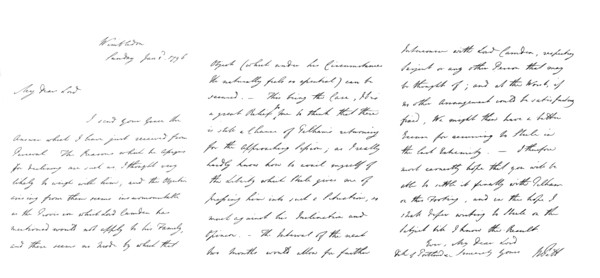 Wimbledon
Sunday Jan. 3d. 1796
My Dear Lord
I send Your Grace the
Answer which I have just received from
Percival. The Reasons which he assigns
for declining are such as I thought very
likely to weigh with him, and the Objection
arising from them seems insurmountable
as the Provision which Lord Camden has
mentioned would not apply to his Family,
and there seems no mode by which that
Object (which under his Circumstances
He naturally feels so essential) can be
secured. — This being the Case, It is
a great Relief to me to think that there
is still a Chance of Pelham's returning
for the approaching Session; as I really
hardly know how to avail myself of
the Liberty which Steele gives me of
pressing him into such a Situation, so
much against his Inclination and
Opinion. — The Interval of the next
two months would allow for further
Intercourse with Lord Camden, respecting
Sargent or any other Person that may
be thought of; and at the Worst, if
no other Arrangement could be satisfactorily
fixed, We might then have a better
Excuse for recurring to Steele in
the last Extremity. — I therefore
most earnestly hope that you will be
able to settle it finally with Pelham
on this Footing, and in this hope I
shall defer writing to Steele on the
subject till I know the Result.
Ever, My Dear Lord
Duke of Portland Sincerely Yours W Pitt